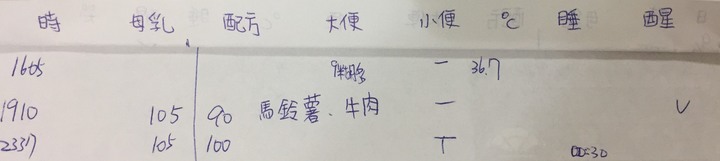 時 母乳 配方 大便 小便 °C 睡 醒
1605 一 36.7
1910 105 90 馬鈴薯、牛肉 一 V
2337 105 100 T 00:30